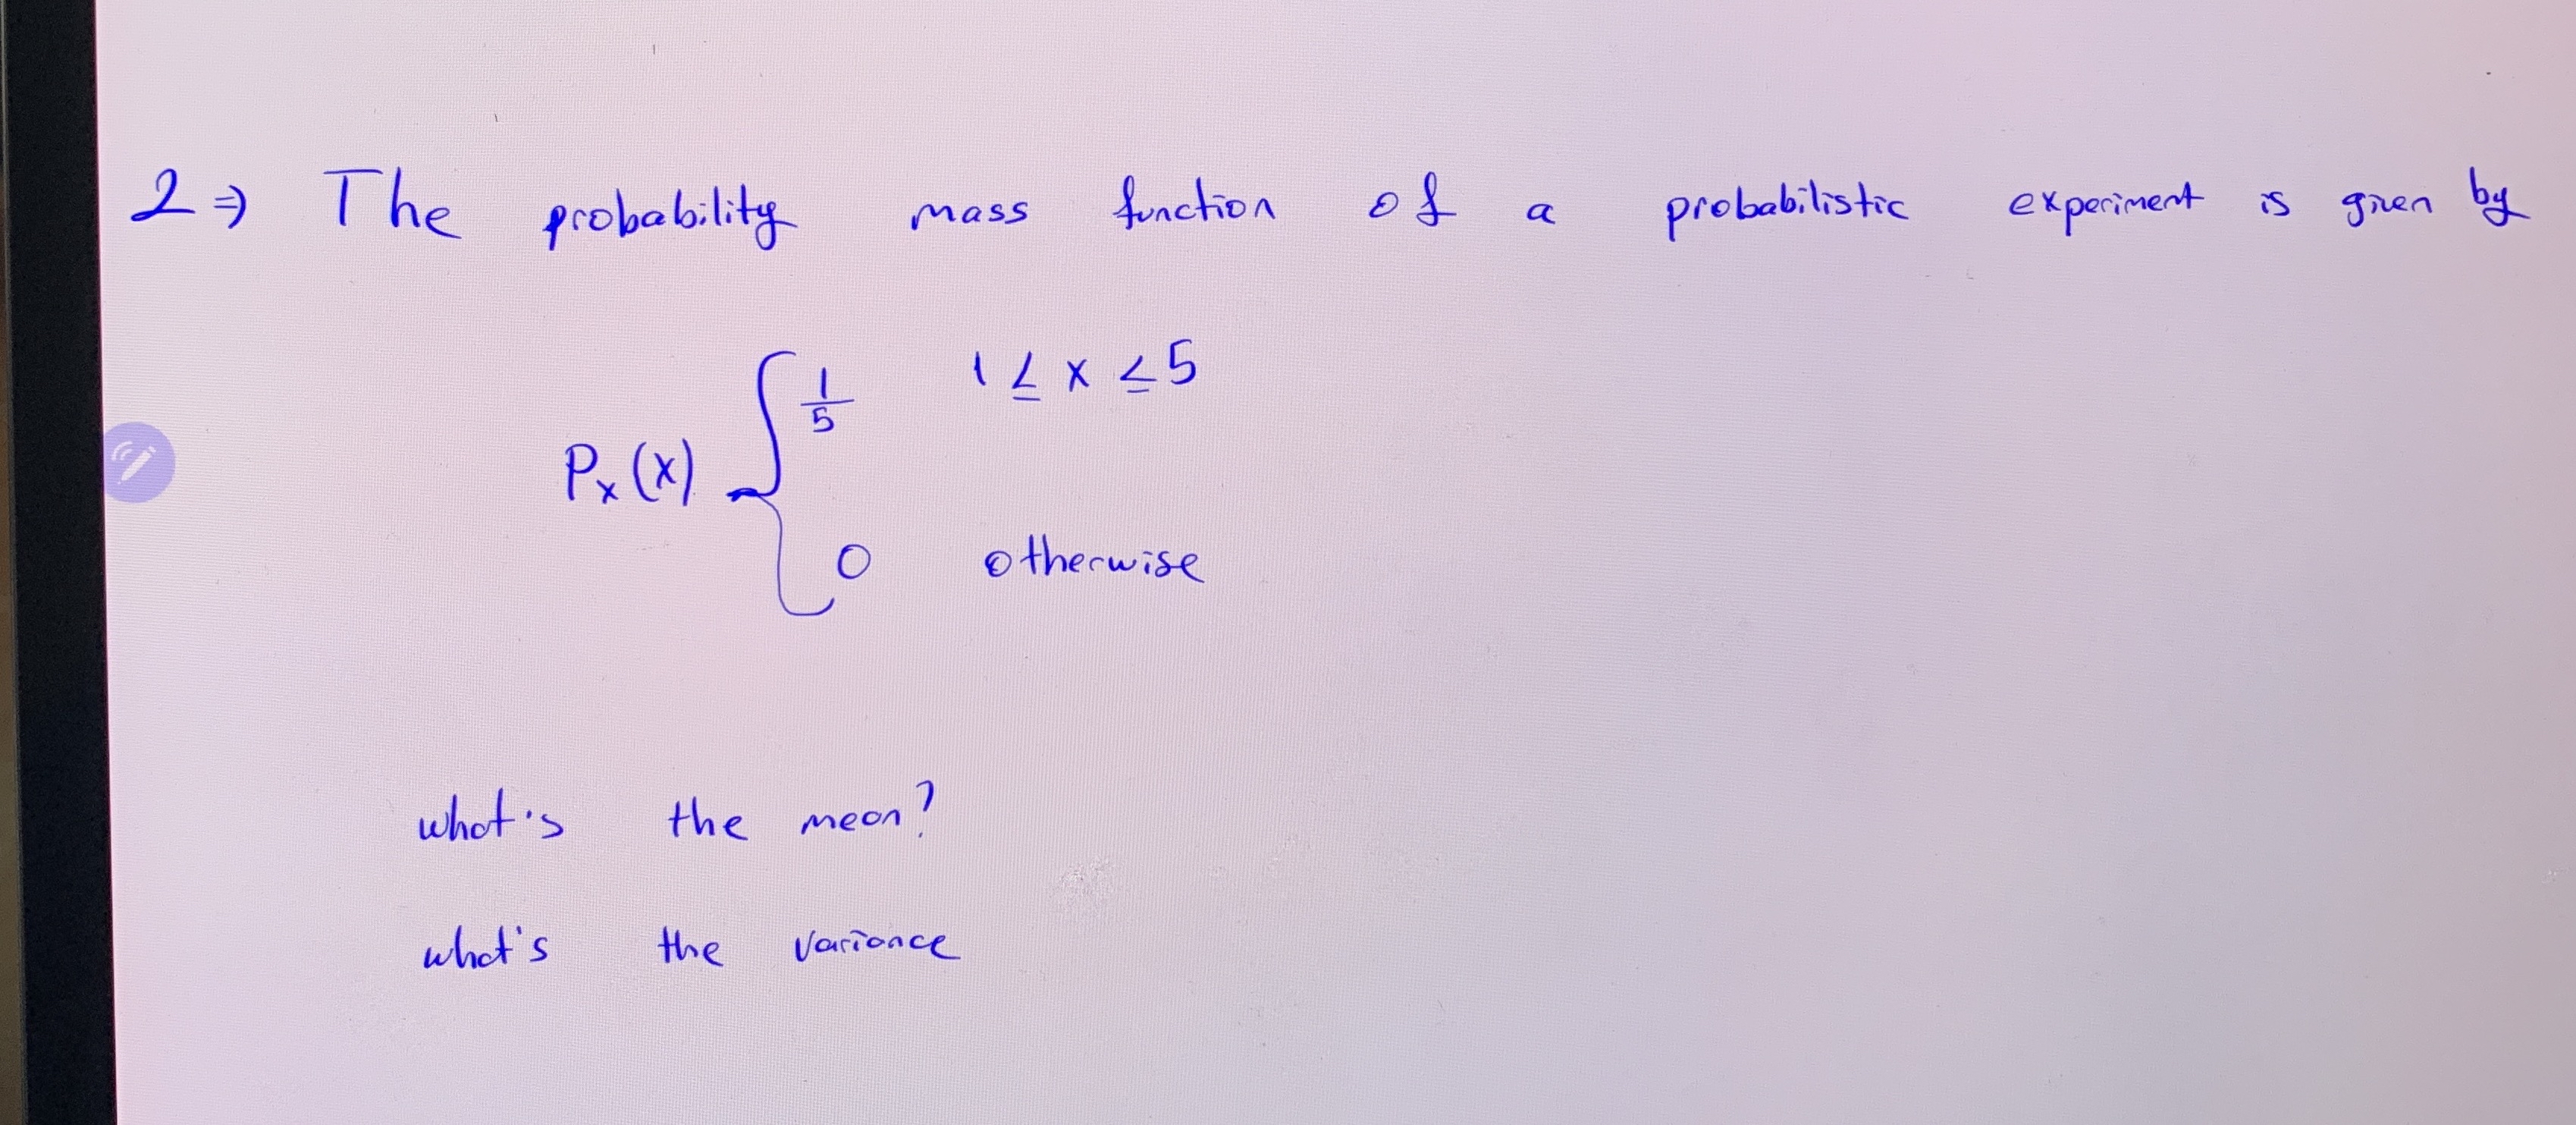 2⇒ The probability mass function of a probabilistic experiment is given by
1/5 1 ≤ x ≤ 5
Px(x)
0 otherwise
what's the mean?
what's the variance